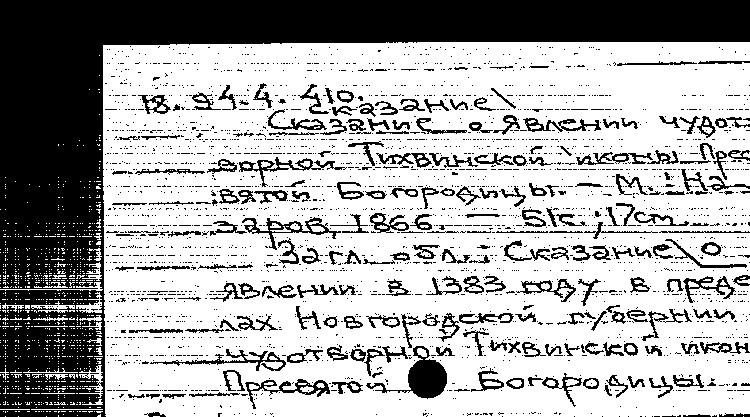 18.94.4.410.
Сказание\
Сказание о явлении чудот-
ворной Тихвинской \иконы Прес
вятой Богородицы. — М.: На-
заров, 1866. — 51с.; 17см.
Загл. обл.: Сказание\ о
явлении в 1383 году в преде
лах Новгородской губернии
чудотворной Тихвинской икон
Пресвятой Богородицы.